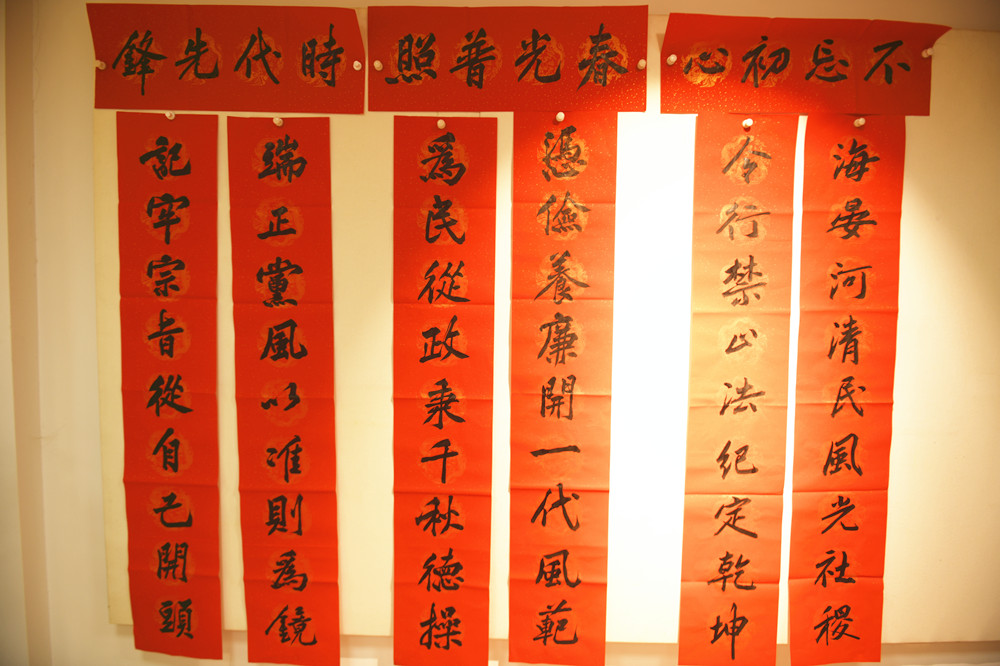 不忘初心
海晏河清民風光社稷
令行禁止法紀定乾坤
春光普照
憑儉養廉開一代風範
爲民從政秉千秋德操
時代先鋒
端正黨風以准則爲鏡
記牢宗旨從自己開頭